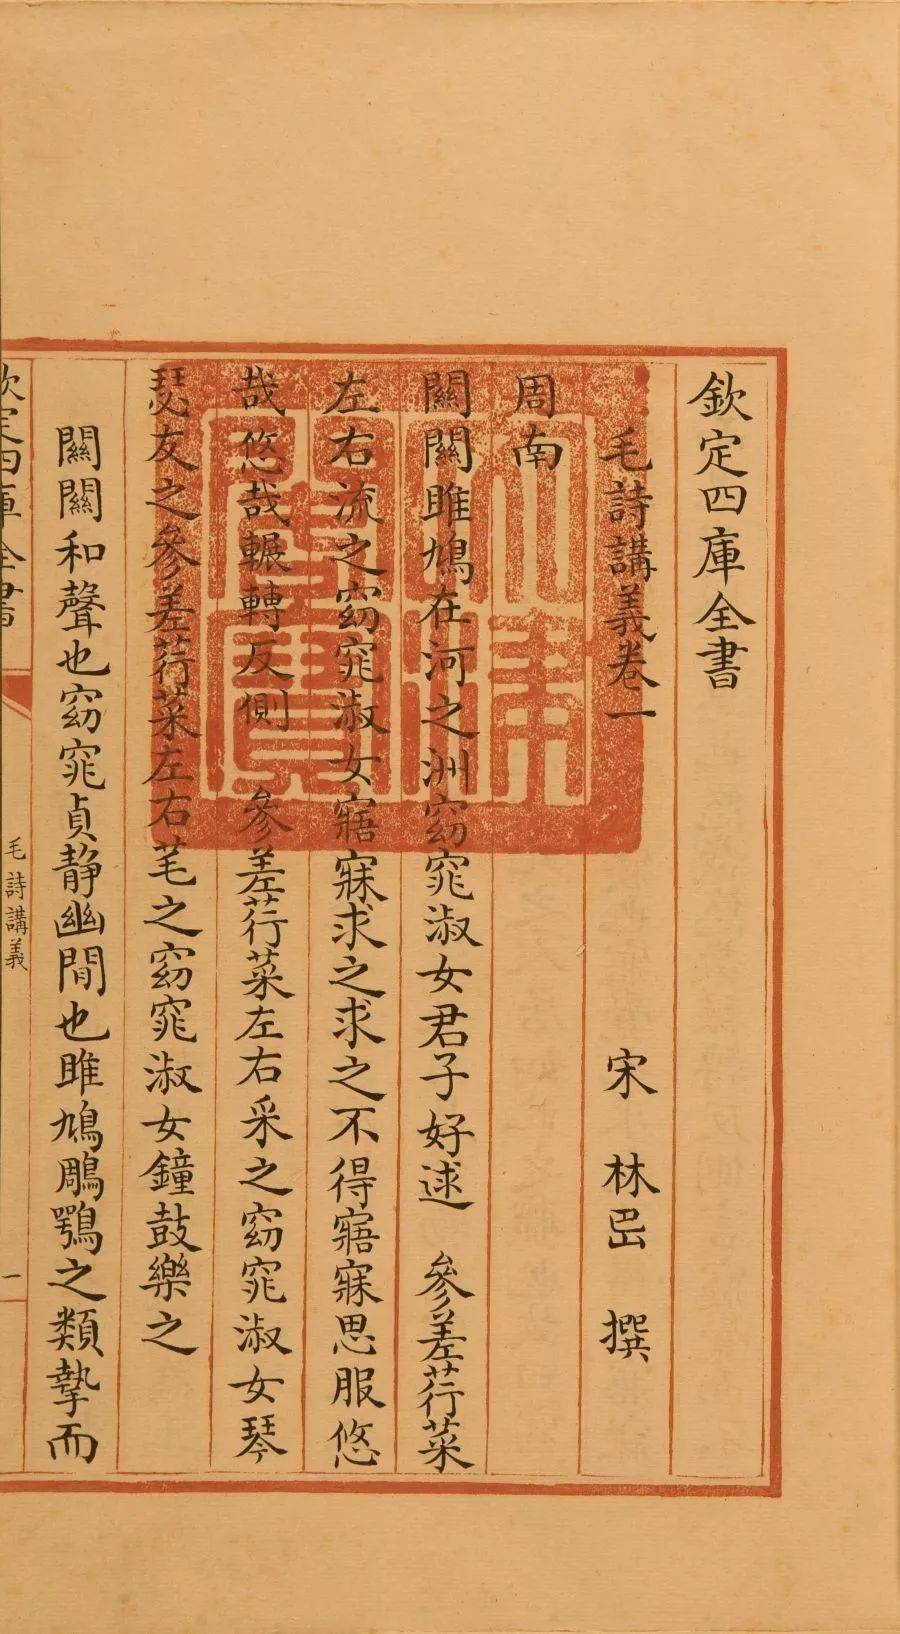 欽定四庫全書
毛詩講義卷一
宋 林岊 撰
周南
關關雎鳩在河之洲窈窕淑女君子好逑 參差荇菜
左右流之窈窕淑女寤寐求之求之不得寤寐思服悠
哉悠哉輾轉反側 參差荇菜左右采之窈窕淑女琴
瑟友之參差荇菜左右芼之窈窕淑女鐘鼓樂之
關關和聲也窈窕貞靜幽閒也雎鳩鵰鶚之類摯而
欽定四庫全書
毛詩講義
一